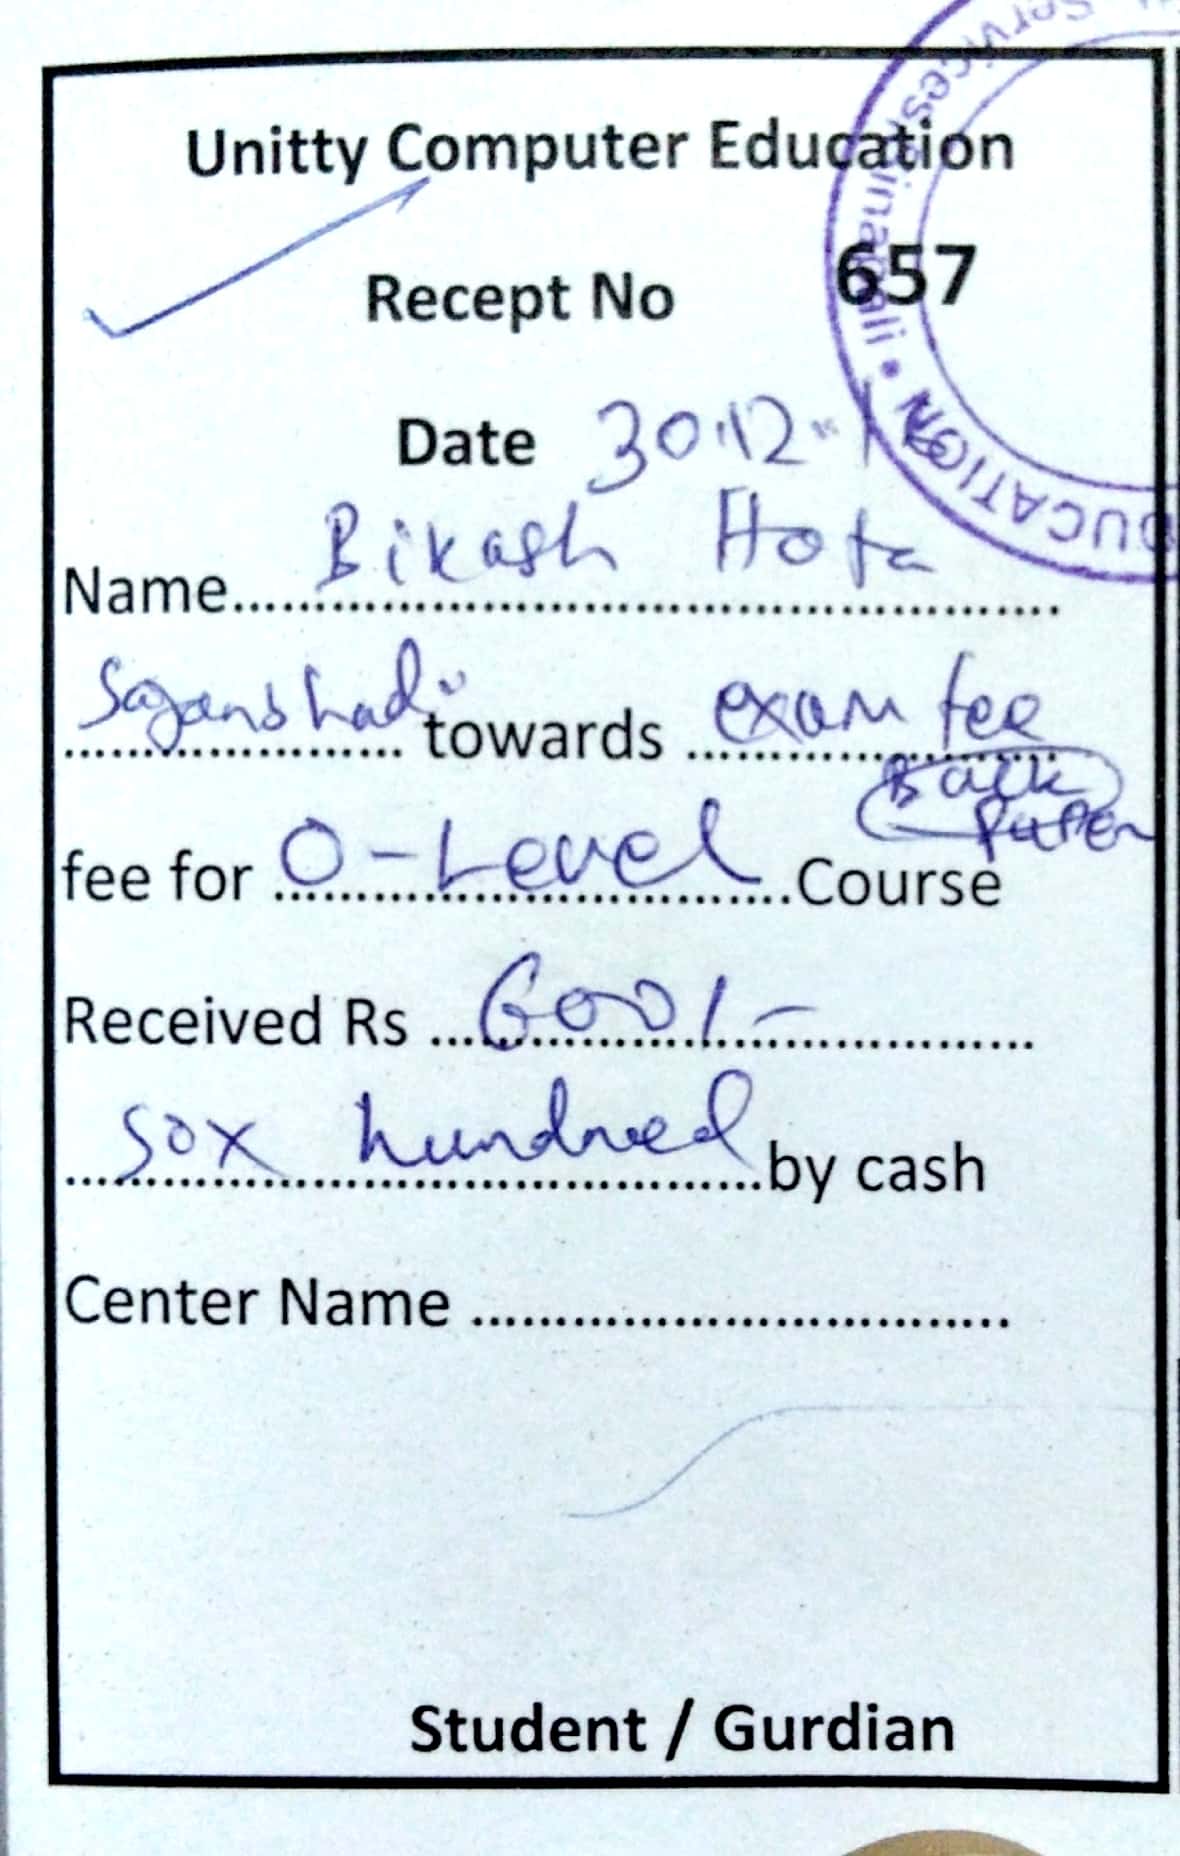 Unitty Computer Education
Recept No 657
Date 30.12
Name.......Bikash Hota.......
towards exam fee
Back
Paper
fee for O-Level Course
Received Rs 600/-
Sox hundred by cash
Center Name ................................
Student / Gurdian